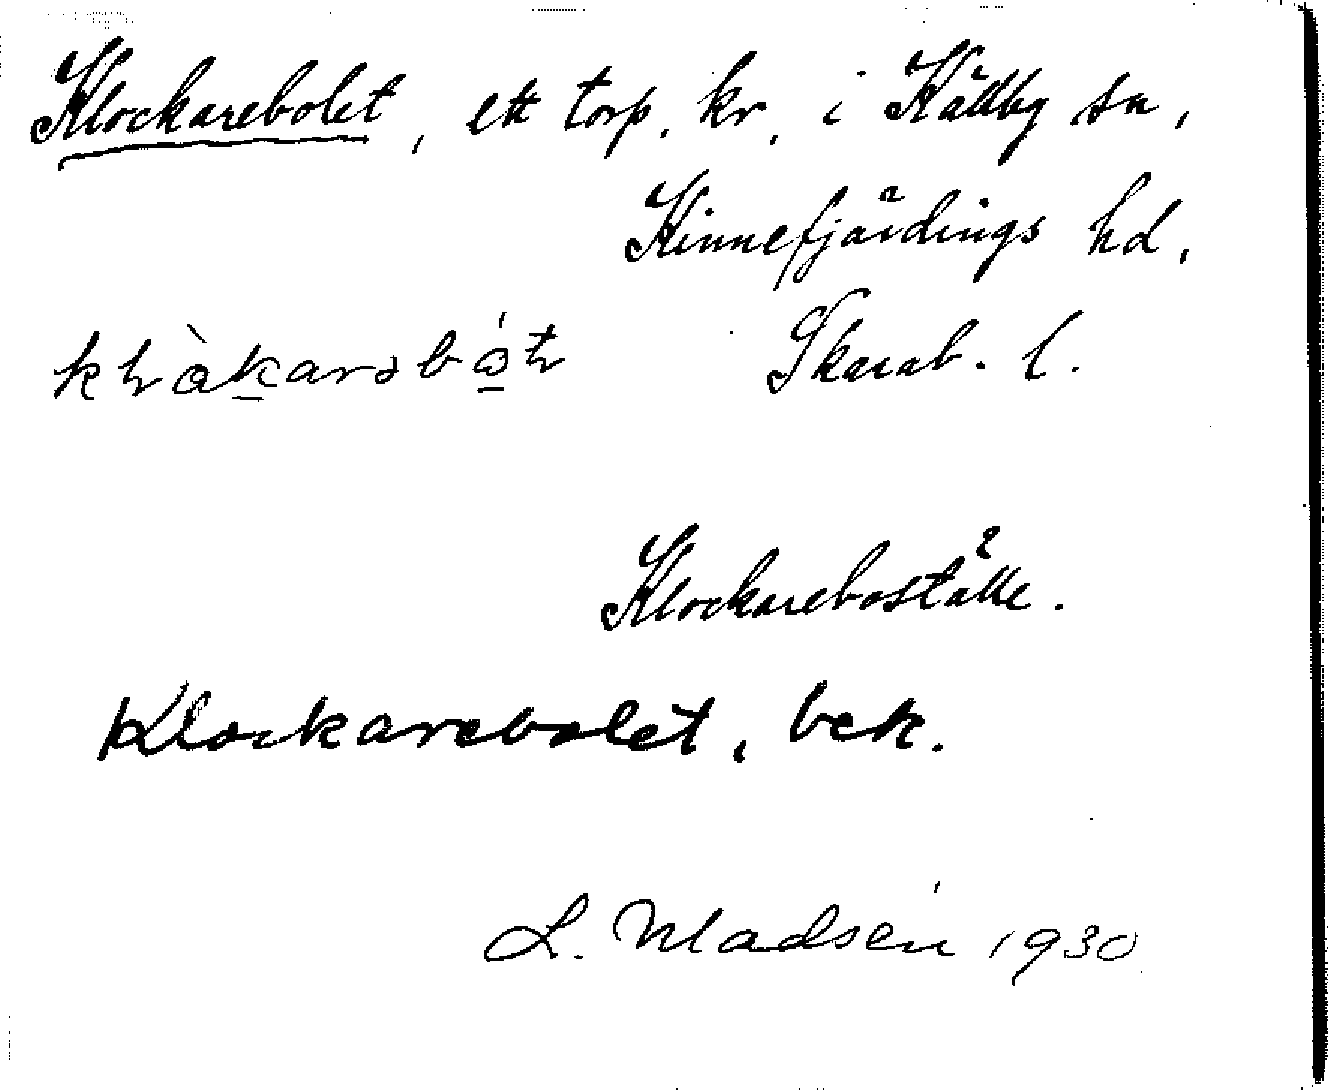 Klockarebolet, ett torp. kr. i Källby sn,
Kinnefjärdings hd,
Skarab. l.
Klockareboställe.
Klockarebolet, bek.
L. Madsén 1930